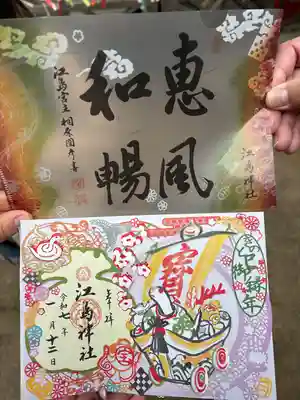 惠風
和暢
江島宮主相原圀彦書
江島神社
奉拝
江島神社
令和七年
一月十二日
寳